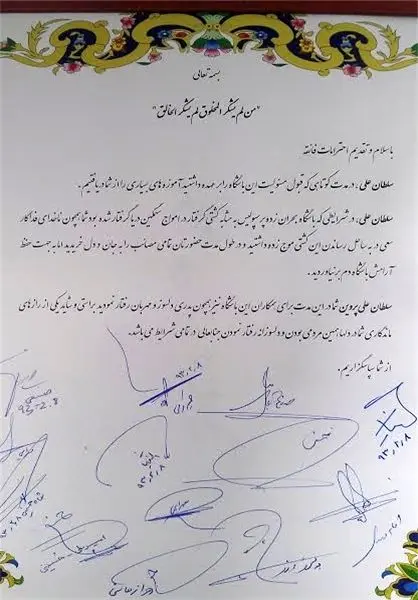 بسمه تعالی
"من لم یشکر المخلوق لم یشکر الخالق"
با سلام و تقدیم احترامات فائقه
سلطان علی، در مدت کوتاهی که قبول مسئولیت این باشگاه را بر عهده داشتید آموزه های بسیاری را از شما دریافتیم.
سلطان علی، در شرایطی که باشگاه بحران زده پرسپولیس به مثابه کشتی گرفتار در امواج سنگین دریا گرفتار شده بود شما همچون ناخدای فداکار
سعی در به ساحل رساندن این کشتی موج زده داشتید و در طول مدت حضورتان تمامی مصائب را به جان و دل خریدید اما به جهت حفظ
آرامش باشگاه دم بر نیاوردید.
سلطان علی پروین شما در این مدت برای همکاران این باشگاه نیز همچون پدری دلسوز و مهربان رفتار نمودید براستی و شاید یکی از رازهای
ماندگاری شما در دلها همین مردمی بودن و دلسوزانه رفتار نمودن جنابعالی در تمامی شرایط می باشد.
از شما سپاسگزاریم.
۹۳،۲،۸
93-2-8
۹۳،۲،۸
۹۳،۲،۸